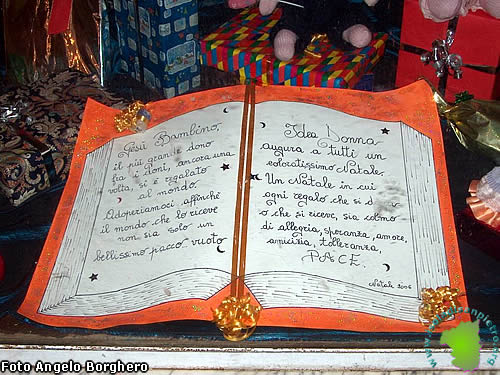 Gesù Bambino,
il più grande dono
fra i doni, ancora una
volta, si è regalato
al mondo.
Adoperiamoci affinché
il mondo che lo riceve
non sia solo un
bellissimo pacco vuoto
Idea Donna
augura a tutti un
coloratissimo Natale.
Un Natale in cui
ogni regalo che si d
o che si riceve, sia colmo
di allegria, speranza, amore,
amicizia, tolleranza,
PACE.
Natale 2006
Foto Angelo Borghero